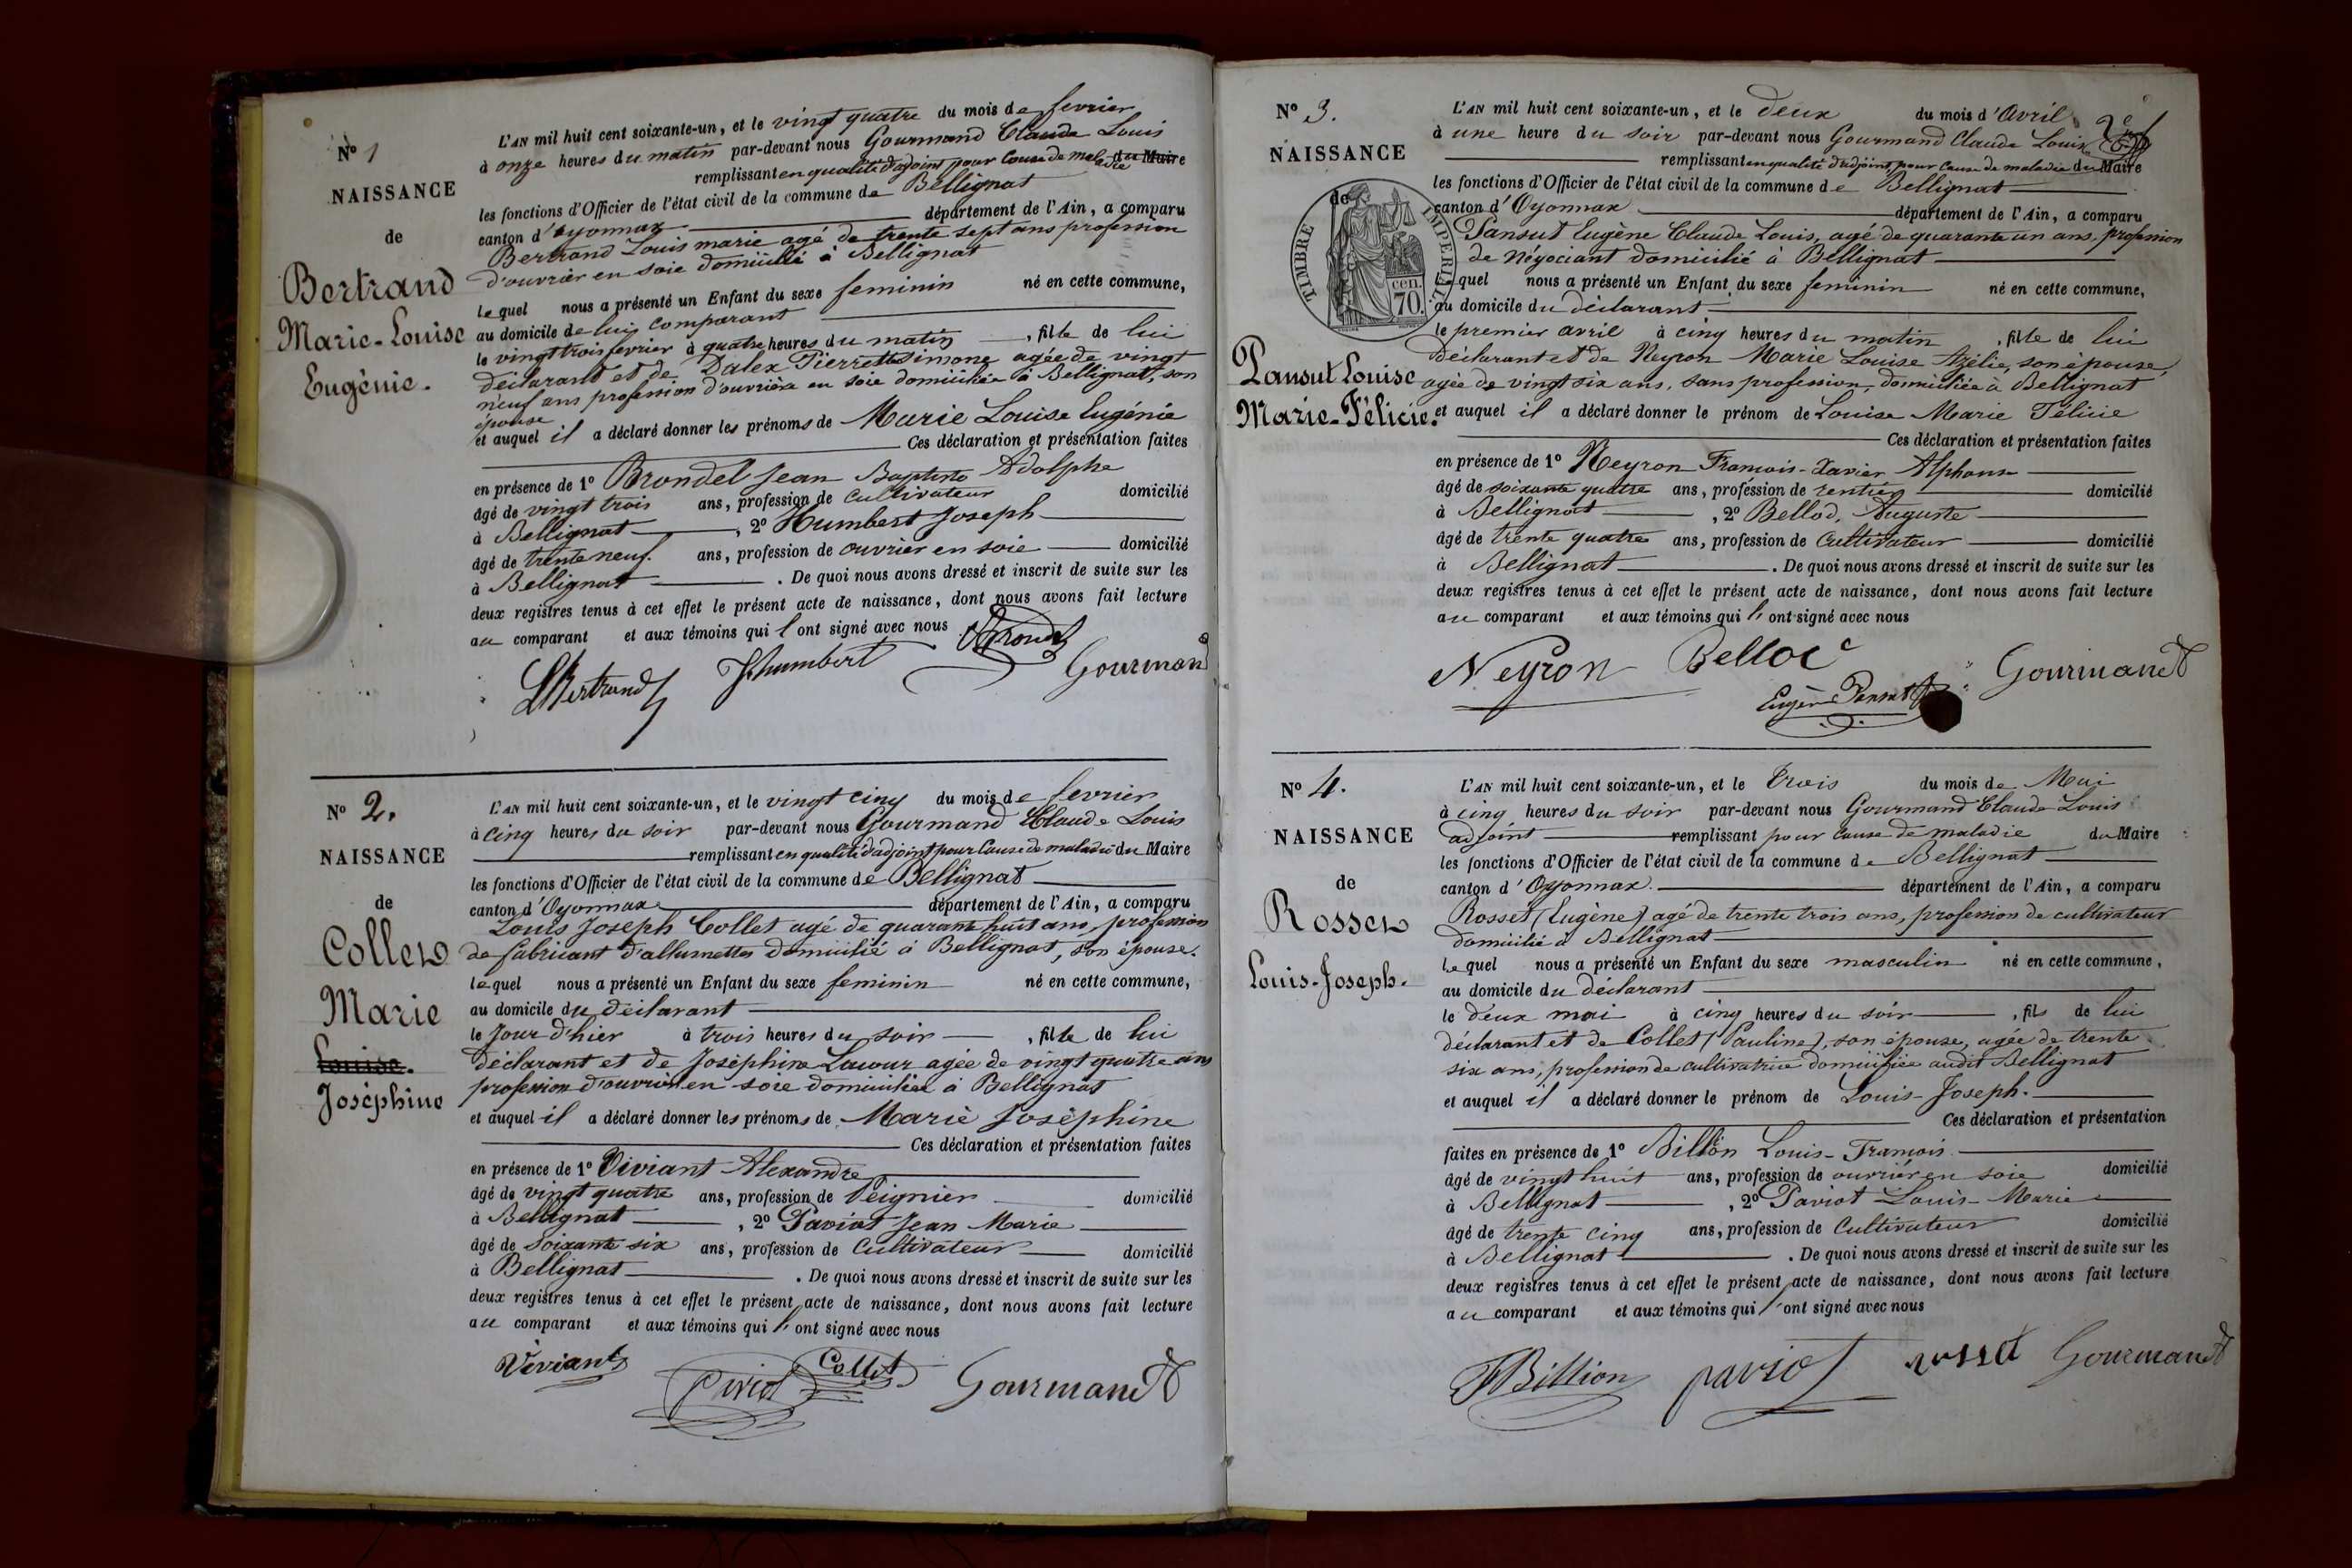 N° 1
NAISSANCE
de
Bertrand
Marie-Louise
Eugénie.
L'AN mil huit cent soixante-un, et le vingt quatre du mois de fevrier
à onze heures du matin par-devant nous Gourmand Claude Louis
remplissant en qualité d'adjoint pour cause de maladie du Maire
les fonctions d'Officier de l'état civil de la commune de Bellignat
canton d'oyonnax département de l'Ain, a comparu
Bertrand Louis marie agé de trente sept ans profession
d'ouvrier en soie domicilié à Bellignat
lequel nous a présenté un Enfant du sexe feminin né en cette commune,
au domicile de lui comparant
le vingt trois fevrier à quatre heures du matin, fille de lui
déclarant et de Dalex Pierrette Simone agée de vingt
neuf ans profession d'ouvrière en soie domiciliée à Bellignat, son
épouse
et auquel il a déclaré donner les prénoms de Marie Louise Eugénie
Ces déclaration et présentation faites
en présence de 1° Brondel Jean Baptiste Adolphe
âgé de vingt trois ans, profession de cultivateur domicilié
à Bellignat, 2° Humbert Joseph
âgé de trente neuf ans, profession de ouvrier en soie domicilié
à Bellignat. De quoi nous avons dressé et inscrit de suite sur les
deux registres tenus à cet effet le présent acte de naissance, dont nous avons fait lecture
au comparant et aux témoins qui l'ont signé avec nous
LBertrand J humbert Gourmand
N° 2.
NAISSANCE
de
Collet
Marie
Louise.
Joséphine
L'AN mil huit cent soixante-un, et le vingt cinq du mois de fevrier
à cinq heures du soir par-devant nous Gourmand Claude Louis
remplissant en qualité d'adjoint pour cause de maladie du Maire
les fonctions d'Officier de l'état civil de la commune de Bellignat
canton d'Oyonnax département de l'Ain, a comparu
Louis Joseph Collet agé de quarante huit ans, profession
de fabricant d'allumettes domicilié à Bellignat, son épouse.
lequel nous a présenté un Enfant du sexe feminin né en cette commune,
au domicile du déclarant
le Jour d'hier à trois heures du soir, fille de lui
déclarant et de Joséphine Lacour agée de vingt quatre ans
profession d'ouvrière en soie domiciliée à Bellignat
et auquel il a déclaré donner les prénoms de Marie Joséphine
Ces déclaration et présentation faites
en présence de 1° Viviant Alexandre
âgé de vingt quatre ans, profession de Peignier domicilié
à Bellignat, 2° Paviot Jean Marie
âgé de soixante six ans, profession de Cultivateur domicilié
à Bellignat. De quoi nous avons dressé et inscrit de suite sur les
deux registres tenus à cet effet le présent acte de naissance, dont nous avons fait lecture
au comparant et aux témoins qui l'ont signé avec nous
Viviant Collet Gourmand
N° 3.
NAISSANCE
de
TIMBRE IMPERIAL
70 cen.
Pansut Louise
Marie-Félicie.
L'AN mil huit cent soixante-un, et le deux du mois d'Avril
à une heure du soir par-devant nous Gourmand Claude Louis
remplissant en qualité d'adjoint, pour cause de maladie du Maire
les fonctions d'Officier de l'état civil de la commune de Bellignat
canton d'Oyonnax département de l'Ain, a comparu
Pansut Eugène Claude Louis, agé de quarante un ans, profession
de Négociant domicilié à Bellignat
lequel nous a présenté un Enfant du sexe feminin né en cette commune,
au domicile du déclarant
le premier avril à cinq heures du matin, fille de lui
déclarant et de Neyron Marie Louise Azélie, son épouse,
agée de vingt six ans, sans profession, domiciliée à Bellignat
et auquel il a déclaré donner le prénom de Louise Marie Félicie
Ces déclaration et présentation faites
en présence de 1° Neyron François-Xavier Alphonse
âgé de soixante quatre ans, profésion de rentier domicilié
à Bellignat, 2° Bellod, Auguste
âgé de trente quatre ans, profession de Cultivateur domicilié
à Bellignat. De quoi nous avons dressé et inscrit de suite sur les
deux registres tenus à cet effet le présent acte de naissance, dont nous avons fait lecture
au comparant et aux témoins qui l'ont signé avec nous
Neyron Bellod Gourmand
Eugène Pansut
N° 4.
NAISSANCE
de
Rosset
Louis-Joseph.
L'AN mil huit cent soixante-un, et le trois du mois de Mai
à cinq heures du soir par-devant nous Gourmand Claude Louis
adjoint remplissant pour cause de maladie du Maire
les fonctions d'Officier de l'état civil de la commune de Bellignat
canton d'Oyonnax. département de l'Ain, a comparu
Rosset (Eugène) agé de trente trois ans, profession de cultivateur
domicilié à Bellignat
lequel nous a présenté un Enfant du sexe masculin né en cette commune,
au domicile du déclarant
le deux mai à cinq heures du soir, fils de lui
déclarant et de Collet (Pauline), son épouse, agée de trente
six ans, profession de cultivatrice domiciliée audit Bellignat
et auquel il a déclaré donner le prénom de Louis-Joseph.
Ces déclaration et présentation
faites en présence de 1° Billion Louis-François
âgé de vingt huit ans, profession de ouvrier en soie domicilié
à Bellignat, 2° Paviot Louis-Marie
âgé de trente cinq ans, profession de Cultivateur domicilié
à Bellignat. De quoi nous avons dressé et inscrit de suite sur les
deux registres tenus à cet effet le présent acte de naissance, dont nous avons fait lecture
au comparant et aux témoins qui l'ont signé avec nous
Billion paviot rosset Gourmand